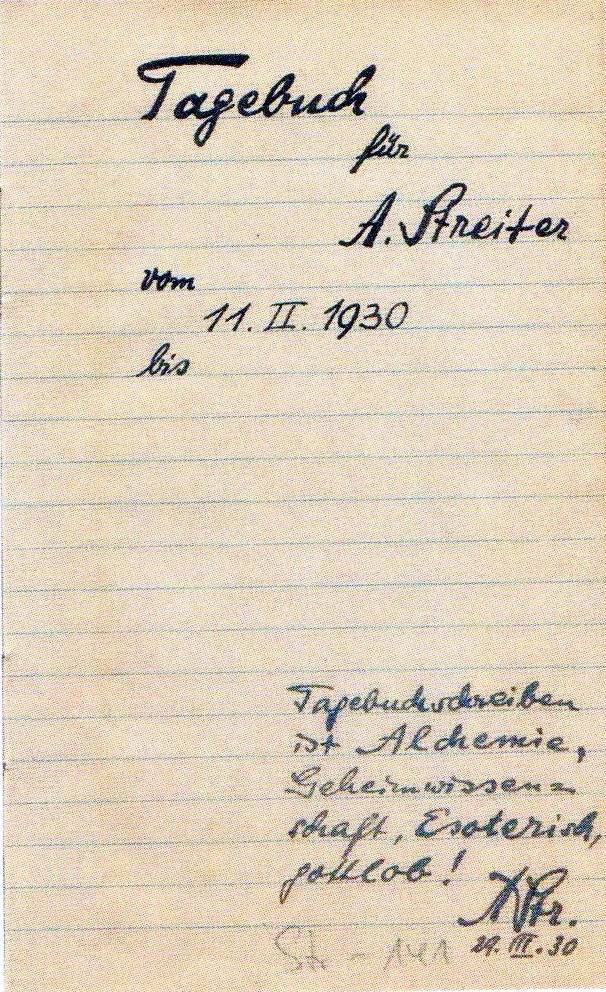 Tagebuch
für
A. Streiter
vom
11. II. 1930
bis
Tagebuchschreiben
ist Alchemie,
Geheimwissen=
schaft, Esoterisch,
gottlob!
AStr.
29. III. 30
Str - 141